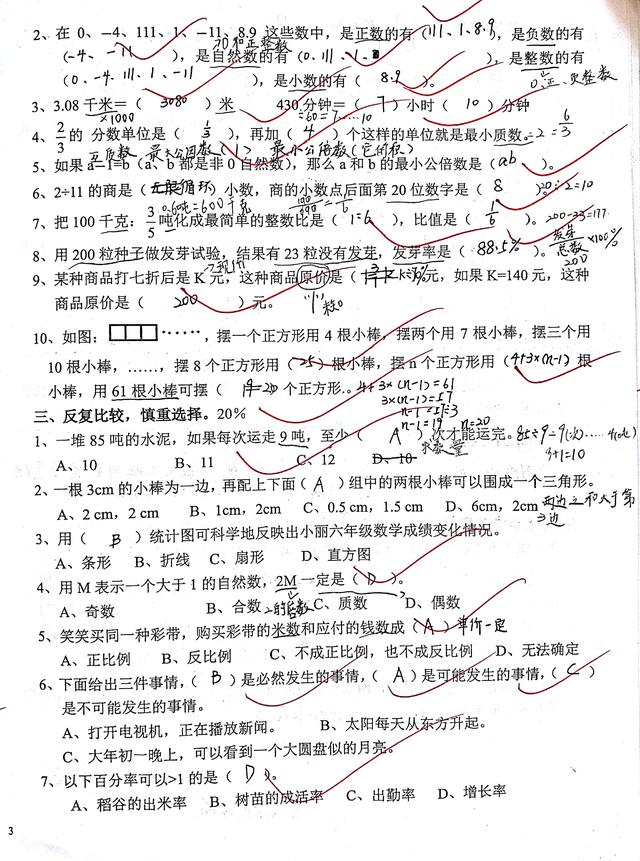 2、在 0、−4、111、1、−11、8.9 这些数中，是正数的有（111、1、8.9），是负数的有
0和正整数
（-4、-11），是自然数的有（0、111、1），是整数的有
（0、-4、111、1、-11），是小数的有（8.9）。
3、3.08 千米＝（3080）米 430 分钟＝（7）小时（10）分钟
×1000 ÷60=7……10
4、2/3 的 分数单位是（1/3），再加（4）个这样的单位就是最小质数。=2=6/3
互质数 最大公因数（1） 最小公倍数（它们积）
5、如果 a−1=b（a、b 都是非 0 自然数），那么 a 和 b 的最小公倍数是（ab）。
6、2÷11 的商是（无限循环）小数，商的小数点后面第 20 位数字是（8）。20÷2=10
0.6吨=600千克 100/600=1/6
7、把 100 千克：3/5 吨化成最简单的整数比是（1:6），比值是（1/6）。200-23=177
8、用 200 粒种子做发芽试验，结果有 23 粒没有发芽，发芽率是（88.5%）。发芽/总数×100%
200
9、某种商品打七折后是 K 元，这种商品原价是（）元，如果 K=140 元，这种
商品原价是（200）元。
10、如图：……，摆一个正方形用 4 根小棒，摆两个用 7 根小棒，摆三个用
10 根小棒，……，摆 8 个正方形用（25）根小棒，摆 n 个正方形用（4+3×(n-1)）根
小棒，用 61 根小棒可摆（20）个正方形。4+3×(n-1)=61
3×(n-1)=57
n-1=57÷3
n-1=19 n=20
三、反复比较，慎重选择。20%
1、一堆 85 吨的水泥，如果每次运走 9 吨，至少（A）次才能运完。85÷9=9(次)……4(吨)
9+1=10
A、10 B、11 C、12 D、10
2、一根 3cm 的小棒为一边，再配上下面（A）组中的两根小棒可以围成一个三角形。
A、2 cm，2 cm B、1cm，2cm C、0.5 cm，1.5 cm D、6cm，2cm 两边之和大于第
三边
3、用（B）统计图可科学地反映出小丽六年级数学成绩变化情况。
A、条形 B、折线 C、扇形 D、直方图
4、用 M 表示一个大于 1 的自然数，2M 一定是（D）。
A、奇数 B、合数 C、质数 D、偶数
5、笑笑买同一种彩带，购买彩带的米数和应付的钱数成（A）单价一定
A、正比例 B、反比例 C、不成正比例，也不成反比例 D、无法确定
6、下面给出三件事情，（B）是必然发生的事情，（A）是可能发生的事情，（C）
是不可能发生的事情。
A、打开电视机，正在播放新闻。 B、太阳每天从东方升起。
C、大年初一晚上，可以看到一个大圆盘似的月亮。
7、以下百分率可以>1 的是（D）。
A、稻谷的出米率 B、树苗的成活率 C、出勤率 D、增长率
3